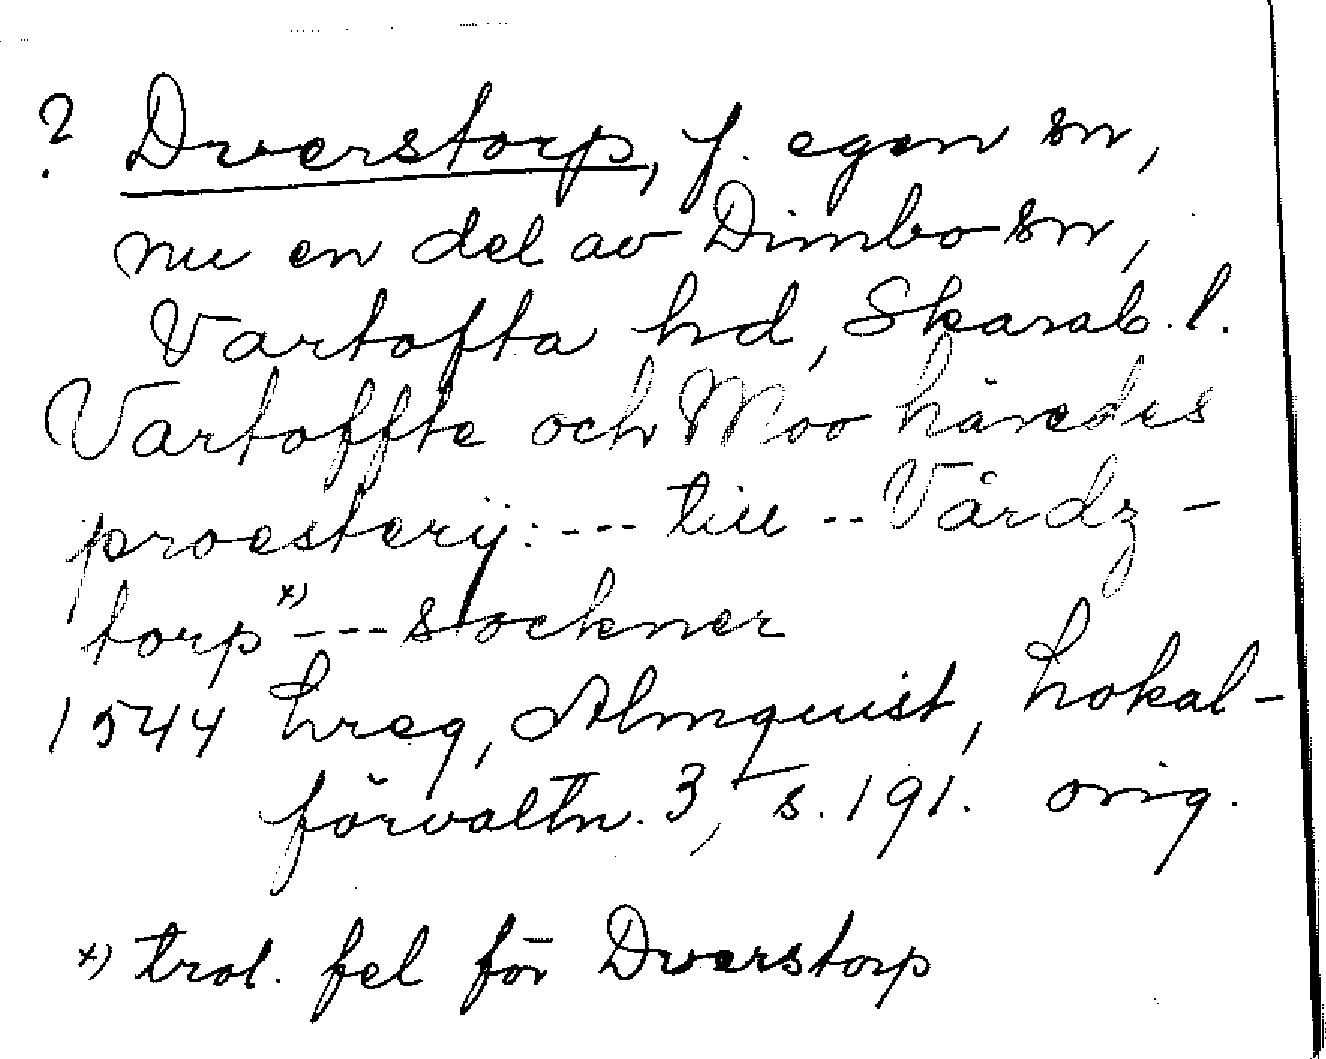 ? Dverstorp, f. egen sn,
nu en del av Dimbo sn,
Vartofta hd, Skarab. l.
Vartoffte och Moo häredes
proesterij: --- till -- Vårdz-
torp *) --- stockner
1544 Lreg, Almquist, Lokal-
förvaltn. 3, s. 191. orig.
*) trol. fel för Dverstorp